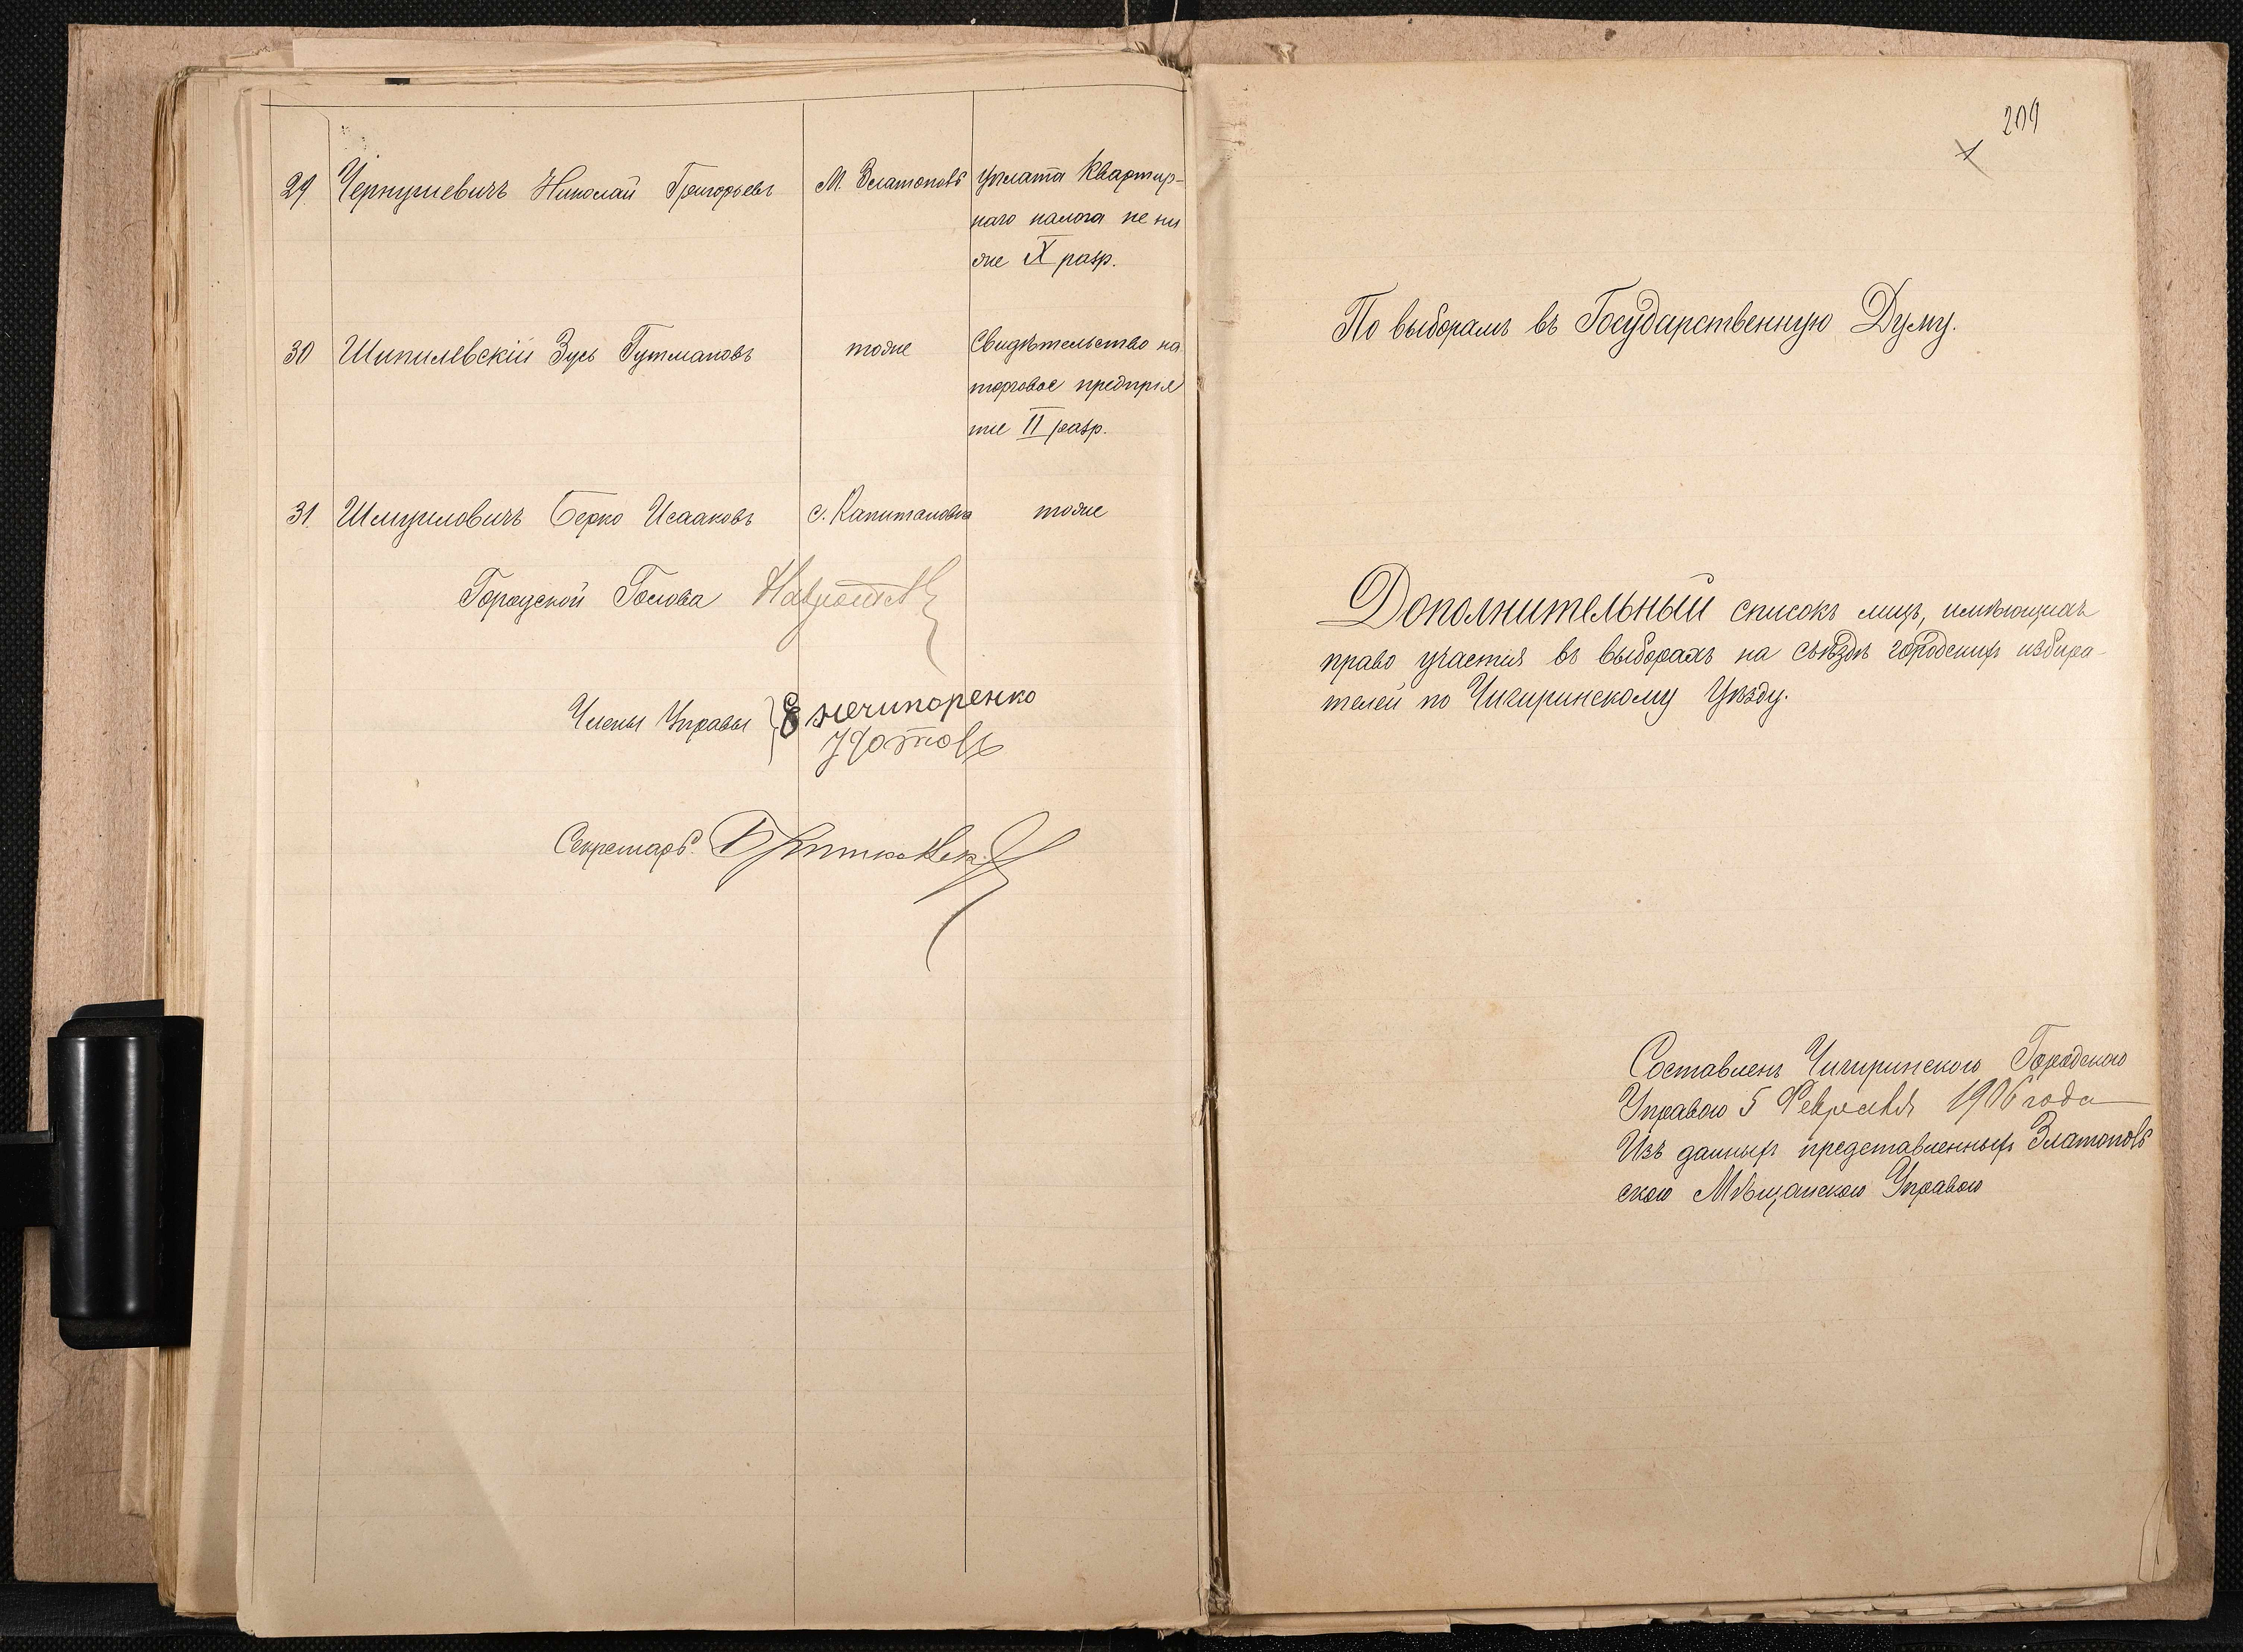 29 Чернушевичъ Николай Григорьевъ М. Златополь уплата Квартир-
наго налога не ни
же X разр.
30 Шипилевскій Зусь Гутмановъ тоже Свидѣтельство на
торговое предпрія
тіе II разр.
31. Шмуиловичъ Берко Исааковъ с. Капитановка тоже
Городской Голова
Члены Управы Е Нечипоренко
Секретарь
209
1
По выборамъ въ Государственную Думу.
Дополнительный списокъ лицъ, имѣющихъ
право участія въ выборахъ на съѣздѣ городскихъ избира-
телей по Чигиринскому Уѣзду.
Составленъ Чигиринскою Городскою
Управою 5 Февраля 1906 года
Изъ данныхъ представленныхъ Златополь
скою Мѣщанскою Управою